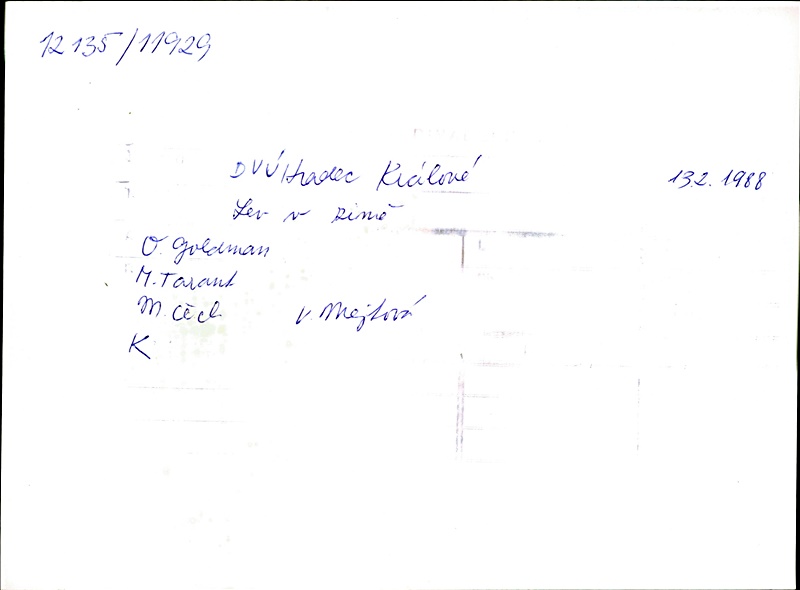 12135/11929
DVÚ Hradec Králové 13.2.1988
Lev v zimě
O. Goldman
M. Tarant
M. Čech V. Mejtová
K